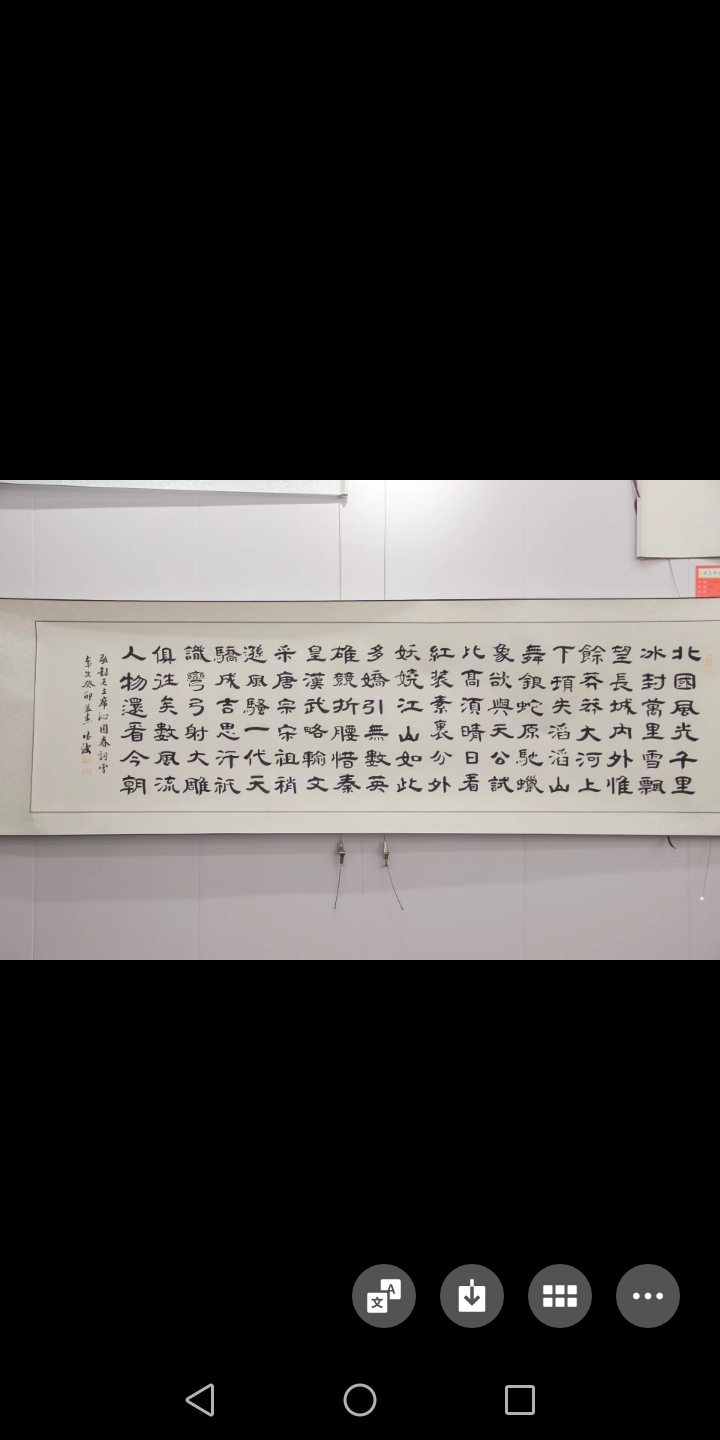 北國風光千里
冰封萬里雪飄
望長城内外惟
餘莽莽大河上
下頓失滔滔山
舞銀蛇原馳蠟
象欲與天公試
比高須晴日看
紅装素裹分外
妖嬈江山如此
多嬌引無數英
雄競折腰惜秦
皇漢武略輸文
采唐宗宋祖稍
遜風騷一代天
驕成吉思汗祇
識彎弓射大雕
俱往矣數風流
人物還看今朝
敬録毛主席沁園春詞雪
癸卯